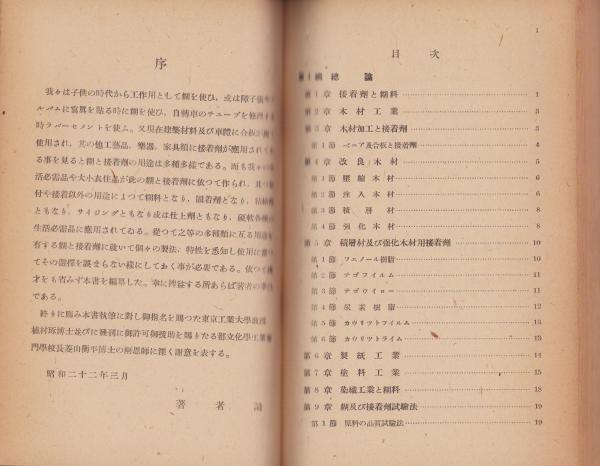 序
我々は子供の時代から工作用として糊を使ひ、或は障子張や
ルバムに寫眞を貼る時に糊を使ひ、自轉車のチューブを修理す
時ラバーセメントを使ふ。又現在建築材料及び車體に合板が
使用され、其の他工藝品、樂器、家具類に接着劑が應用されて
る事を見ると糊と接着劑の用途は多種多樣である。而も我々の
活必需品や大小衣住品が此の糊と接着劑に依つて作られ、其の
付や接着以外の用途によつて糊料となり、固着劑となり、粘
ともなり、サイリングともなり或は仕上劑ともなり、硬軟各種
生活必需品に應用されてゐる。從つて之等の多種類に亙る用途
有する糊と接着劑に就いて個々の製法、特性を悉知し使用に當
てその選擇を誤まらない樣にしておく事が必要である。依つて
才をも省みず本書を編纂した。幸に裨益する所あらば著者の
である。
終りに臨み本書執筆に對し御指名を賜つた東京工業大學敎授
植村琢博士並びに發刊に御許可御援助を賜りたる都立化學工業
門學校長菱山衡平博士の兩恩師に深く謝意を表する。
昭和二十二年三月
著者
1
目次
第1編 總論
第1章 接着劑と糊料 1
第2章 木材工業 3
第3章 木材加工と接着劑 3
第1節 ベニア及合板と接着劑 4
第4章 改良木材 5
第1節 壓縮木材 6
第2節 注入木材 6
第3節 積層材 8
第4節 强化木材 8
第5章 積層材及び强化木材用接着劑 10
第1節 フエノール樹脂 10
第2節 テゴフイルム 11
第3節 テゴウイロー 11
第4節 尿素樹脂 12
第5節 カウリツトフイルム 13
第6節 カウリツトライム 13
第6章 製紙工業 14
第7章 塗料工業 15
第8章 染織工業と糊料 18
第9章 糊及び接着劑試驗法 19
第1節 原料の品質試驗法 19